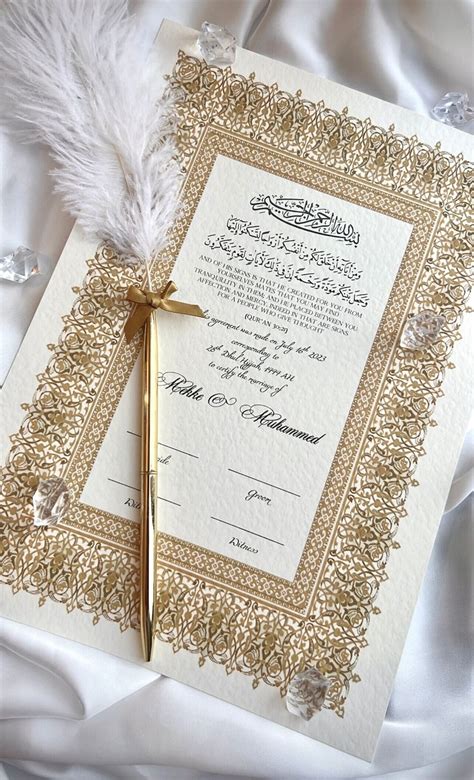 بسم الله الرحمن الرحيم
وَمِنْ آيَاتِهِ أَنْ خَلَقَ لَكُم مِّنْ أَنفُسِكُمْ أَزْوَاجًا لِّتَسْكُنُوا إِلَيْهَا
وَجَعَلَ بَيْنَكُم مَّوَدَّةً وَرَحْمَةً إِنَّ فِي ذَٰلِكَ لَآيَاتٍ لِّقَوْمٍ يَتَفَكَّرُونَ
AND OF HIS SIGNS IS THAT HE CREATED FOR YOU FROM
YOURSELVES MATES THAT YOU MAY FIND
TRANQUILITY IN THEM, AND HE PLACED BETWEEN YOU
AFFECTION, AND MERCY, INDEED IN THAT ARE SIGNS
FOR A PEOPLE WHO GIVE THOUGHT
(QUR'AN 30:21)
agreement was made on July 16th 2023
corresponding to
28th Dhul Hijjah, 1444 AH
to certify the marriage of
Mehke & Muhammed
Groom
Witness
Witness